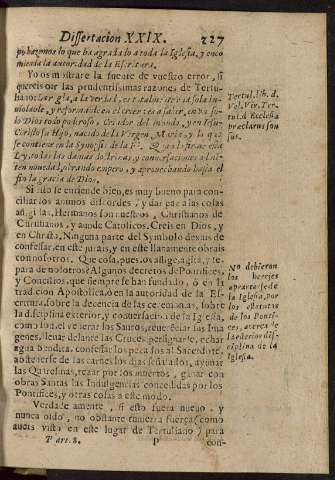 Dissertacion XXIX. 227
y hazemos lo que ha agradado a toda la Iglesia, y enco
mienda la autoridad de la Escritura.
Yo os mostrare la fuente de vuestro error, si
quereis oir las prudentissimas razones de Tertu-
Dios todo poderoso, Criador del mundo, y en Jesu-
Christo su Hijo, nacido de la Virgen, Maria, y lo que
se contiene en la Synopsis de la Fè.
Ley, todas las demàs doctrinas, y conversaciones admi-
ten novedad, obrando empero, y aprovechando hasta el
fin la gracia de Dios.
Si esto se entiende bien, es muy bueno para con-
ciliar los animos discordes, y dar paz a las cosas
afligidas. Hermanos son nuestros, Christianos de
Christianos, y aun de Catolicos. Creis en Dios, y
en Christo. Ninguna parte del Symbolo dexais de
confessar, en este jurais, y en este llanamente obrais
con nosotros. Que cosa, pues, os aflige, agita, y se-
para de nosotros? Algunos decretos de Pontifices,
y Concilios, que siempre se han fundado, ò en la
tradicion Apostolica, ò en la autoridad de la Es-
critura, sobre la decencia de las ceremonias, sobre
la disciplina exterior, y conversacion de la Iglesia,
como son, el venerar los Santos, reverenciar las Ima
genes, llenar delante las Cruces, persignarse, echar
agua bendita, confessar los pecados al Sacerdote,
abstenerse de las carnes los dias señalados, ayunar
las Quaresmas, rezar por los muertos, ganar con
obras Santas las Indulgencias concedidas por los
Pontifices, y otras cosas a este modo.
Verdaderamente, si esto fuera nuevo, y
nunca oido, no obstante tuviera fuerça, como
aueis visto en este lugar de Tertuliano, para
Part. 8. P con-
Tertul. lib. d.
Vel. Vir. Ter-
tul. à Ecclesia
præclarus son
sus.
No debieron
los hereges
apartarse de
la Iglesia, por
los estatutos
de los Ponti-
fices, acerca de
la exterior dis-
ciplina de la
Iglesia.